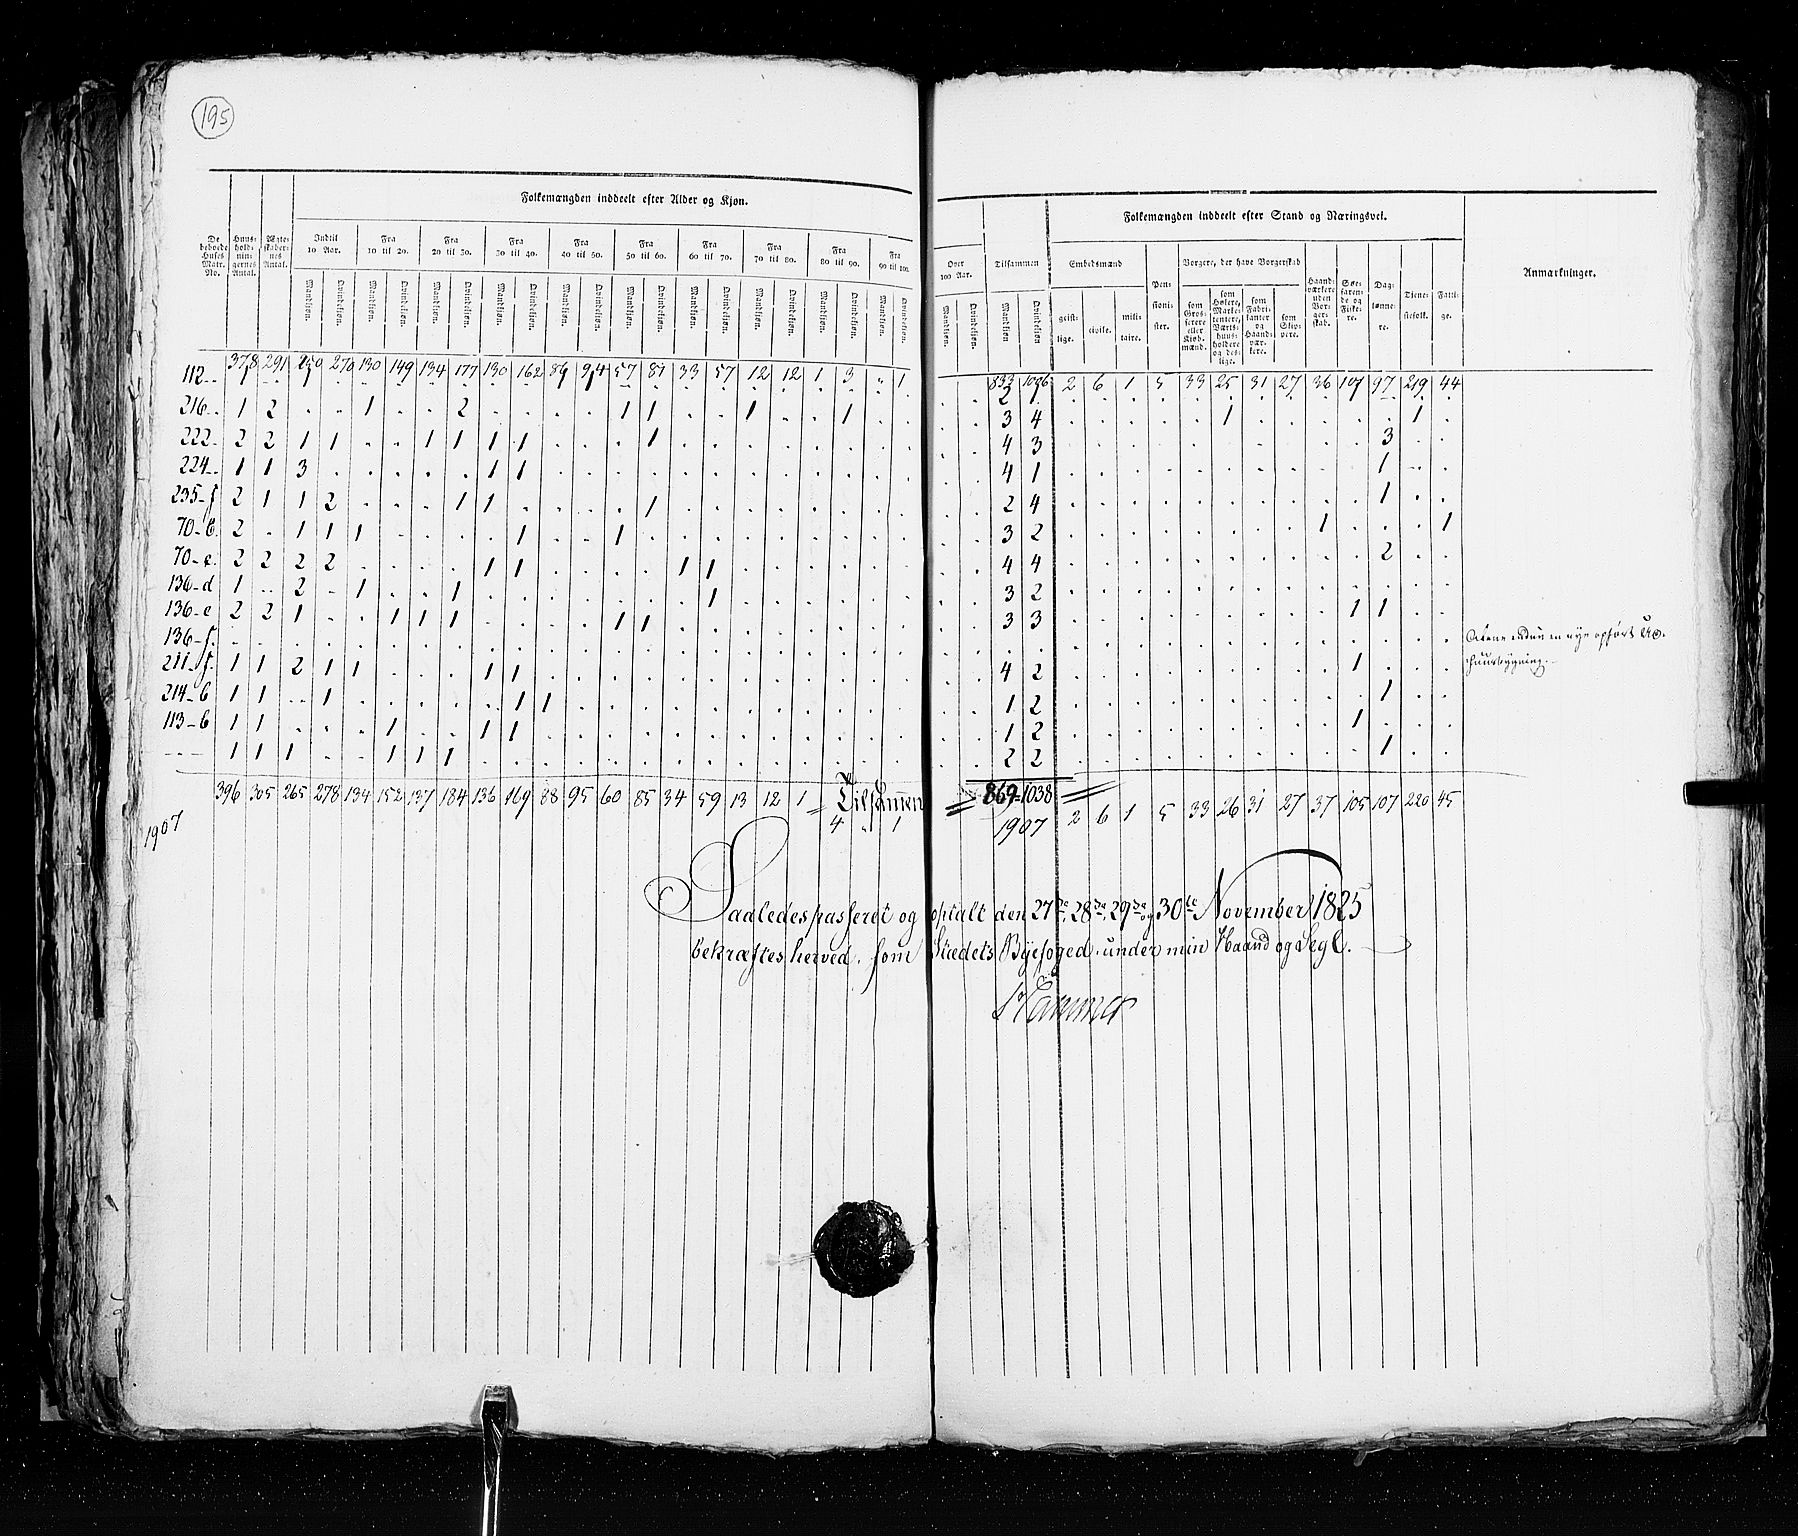 195
Folkemængden inddeelt efter Alder og Kjøn.
Folkemængden inddeelt efter Stand og Næringsvei.
De beboede Huses Matr. No.
Huusholdningernes Antal.
Ægteskabernes Antal.
Indtil 10 Aar.
Fra 10 til 20.
Fra 20 til 30.
Fra 30 til 40.
Fra 40 til 50.
Fra 50 til 60.
Fra 60 til 70.
Fra 70 til 80.
Fra 80 til 90.
Fra 90 til 100.
Over 100 Aar.
Tilsammen
Embedsmænd
Pensionister.
Borgere, der have Borgerskab
Haandværkere uden Borgerskab.
Søefarende og Fiskere.
Dagtønnere.
Tjenestefolk.
Fattige.
Anmærkninger.
Mandkjøn. Qvindekjøn. Mandkjøn. Qvindekjøn. Mandkjøn. Qvindekjøn. Mandkjøn. Qvindekjøn. Mandkjøn. Qvindekjøn. Mandkjøn. Qvindekjøn. Mandkjøn. Qvindekjøn. Mandkjøn. Qvindekjøn. Mandkjøn. Qvindekjøn. Mandkjøn. Qvindekjøn. Mandkjøn. Qvindekjøn. Mandkjøn. Qvindekjøn.
geistlige. civile. militaire.
som Grosserere eller Kjøbmænd.
som Høkere, Marketentere, Værtshuusholdere og deslige.
som Fabrikanter og Haandværkere.
som Skippere.
378 291 250 270 130 149 134 177 130 162 86 94 57 81 33 57 12 12 1 3 " 1 833 1006 2 6 1 5 33 25 31 27 36 101 97 219 44
112 2 1
216 1 2 1 2 1 1 1 1 3 4 1 1
222 2 2 1 1 1 1 1 1 1 4 3 3
224 1 1 3 1 1 4 1 1
235-f 2 1 1 2 1 1 1 2 4 1
70-b. 2 1 1 1 1 1 3 2 1 1
70-c. 2 2 2 2 1 1 1 1 4 4 2
136-d 1 2 1 1 1 3 2
136-e 2 2 1 1 1 1 1 1 3 3 1 1
136-f.
211-f. 1 1 2 1 1 1 1 4 2 1
214-b 1 1 1 1 1 1 2 1
113-b 1 1 1 1 1 1 2 1
1 1 1 1 1 1 2 2 1
en nye opført
huusbygning.
396 305 265 278 134 152 137 184 136 169 88 95 60 85 34 59 13 12 1 = Tilsammen = 869=1038
4 " 1 1907 2 6 1 5 33 26 31 27 37 105 107 220 45
1907
Saaledes passeret og optalt den 27de, 28de, 29de og 30te November 1825
bekræftes herved, som Stædets Byefoged under min Haand og Segl.
Hammer